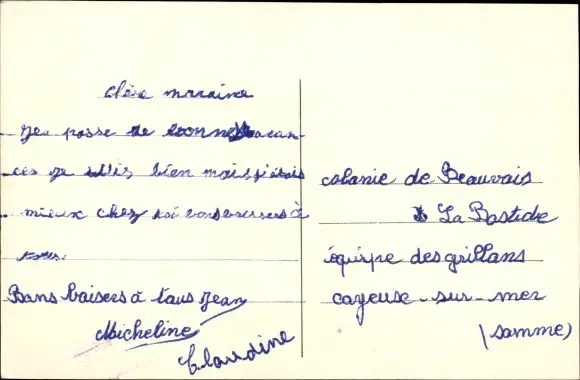 chère marraine
Je passe de bonnes vacan-
ces je suis bien mais j'étais
mieux chez toi bons baisers à
tous.
Bons baisers à tous Jean
Micheline
Claudine
colonie de Beauvais
La Bastide
équipe des grillons
cayeux-sur-mer
(somme)